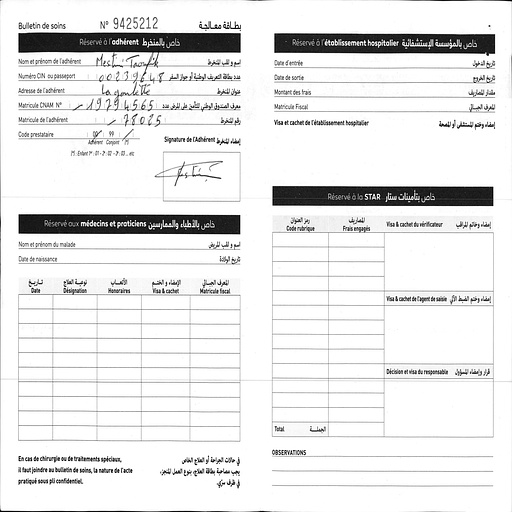 Bulletin de soins N° 9425212 بطاقة معالجة
Réservé à l'adhérent خاص بالمنخرط
Nom et prénom de l'adhérent Mestiri Taoufik اسم و لقب المنخرط
Numéro CIN ou passeport 00239648 عدد بطاقة التعريف الوطنية أو جواز السفر
Adresse de l'adhérent La goulette عنوان المنخرط
Matricule CNAM N° 19794565 معرف الصندوق الوطني للتأمين على المرض عدد
Matricule de l'adhérent 78025 رقم المنخرط
Code prestataire 00 99
Adhérent Conjoint (*)
(*) : Enfant 1er : 01 - 2è : 02 - 3è : 03 ... etc
Signature de l'Adhérent إمضاء المنخرط
Réservé aux médecins et praticiens خاص بالأطباء والممارسين
Nom et prénom du malade اسم و لقب المريض
Date de naissance تاريخ الولادة
تاريخ نوعية العلاج الأتعاب الإمضاء و الختم المعرف الجبائي
Date Désignation Honoraires Visa & cachet Matricule fiscal
En cas de chirurgie ou de traitements spéciaux,
il faut joindre au bulletin de soins, la nature de l'acte
pratiqué sous pli confidentiel.
في حالات الجراحة أو العلاج الخاص
يجب مصاحبة بطاقة العلاج، بنوع العمل المنجز،
في ظرف سري.
Réservé à l'établissement hospitalier خاص بالمؤسسة الإستشفائية
Date d'entrée تاريخ الدخول
Date de sortie تاريخ الخروج
Montant des frais مقدار المصاريف
Matricule Fiscal المعرف الجبائي
Visa et cachet de l'établissement hospitalier إمضاء وختم المستشفى أو المصحة
Réservé à la STAR خاص بتأمينات ستار
رمز العنوان المصاريف
Code rubrique Frais engagés
Visa & cachet du vérificateur إمضاء وخاتم المراقب
Visa & cachet de l'agent de saisie إمضاء وختم الضبط الآلي
Décision et visa du responsable قرار وإمضاء المسؤول
Total الجملة
OBSERVATIONS